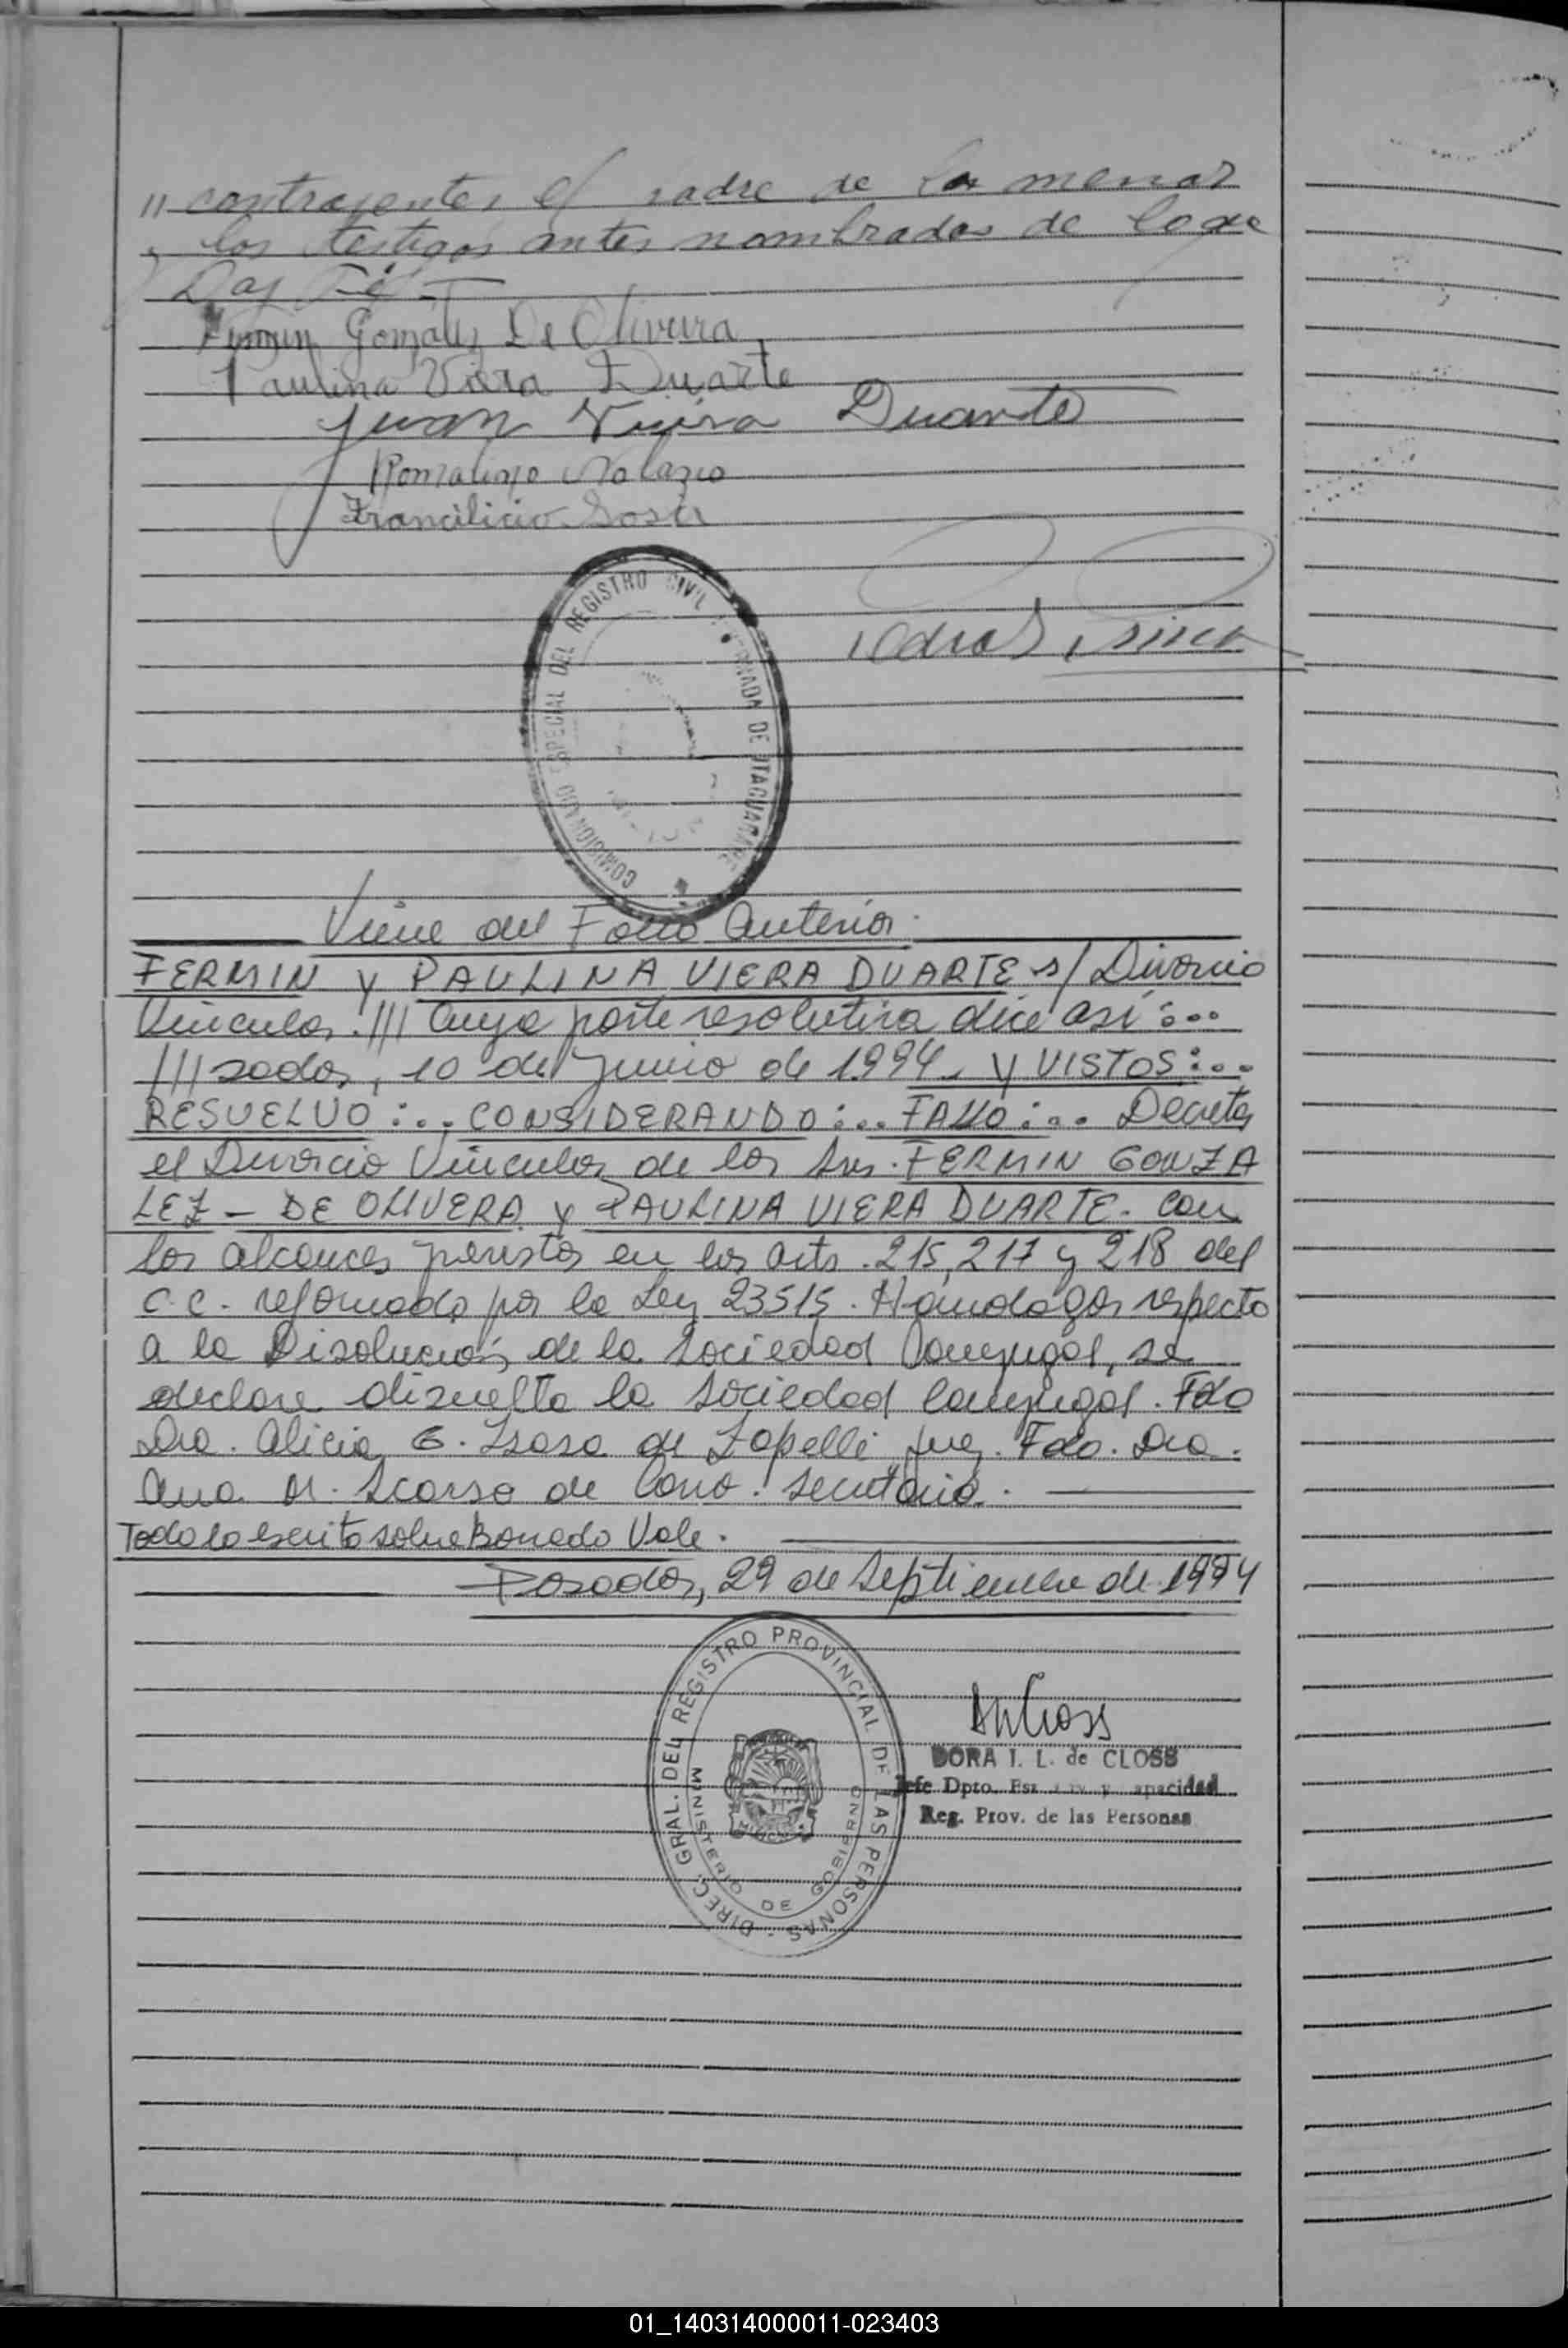 " contrayentes el padre de la menor
y los testigos antes nombrados de lo que
Doy Fé.-
Fermin Gonzalez De Oliveira
Paulina Viera Duarte
Juan Vieira Duarte
Francilicio Sosa
COMICIONADO ESPECIAL DEL REGISTRO CIVIL
DE ITACUARARE
Viene del Folio Anterior.
FERMIN Y PAULINA VIERA DUARTE s/ Divorcio
Vincular. /// Cuya parte resolutiva dice así:...
///sadas, 10 de Junio de 1994. Y VISTOS:...
RESUELVO:... CONSIDERANDO:... FALLO:... Decretar
el Divorcio Vincular de los Sres. FERMIN GONZA
LEZ - DE OLIVERA y PAULINA VIERA DUARTE. Con
los alcances previstos en los arts. 215, 217 y 218 del
C.C. reformado por la Ley 23515. Homologar respecto
a la Disolución de la Sociedad Conyugal, se
declare disuelta la Sociedad Conyugal. Fdo
Dra. Alicia G. de Zapelli Juez. Fdo. Dra.
Ana M. de Cano. Secretaria.
Todo lo escrito sobre Borrado Vale.
Posadas, 29 de Septiembre de 1994
DIREC. GRAL. DEL REGISTRO PROVINCIAL DE LAS PERSONAS
MINISTERIO DE GOBIERNO
DORA I. L. de CLOSS
Jefe Dpto. Est. Civ. y Capacidad
Reg. Prov. de las Personas
01_140314000011-023403